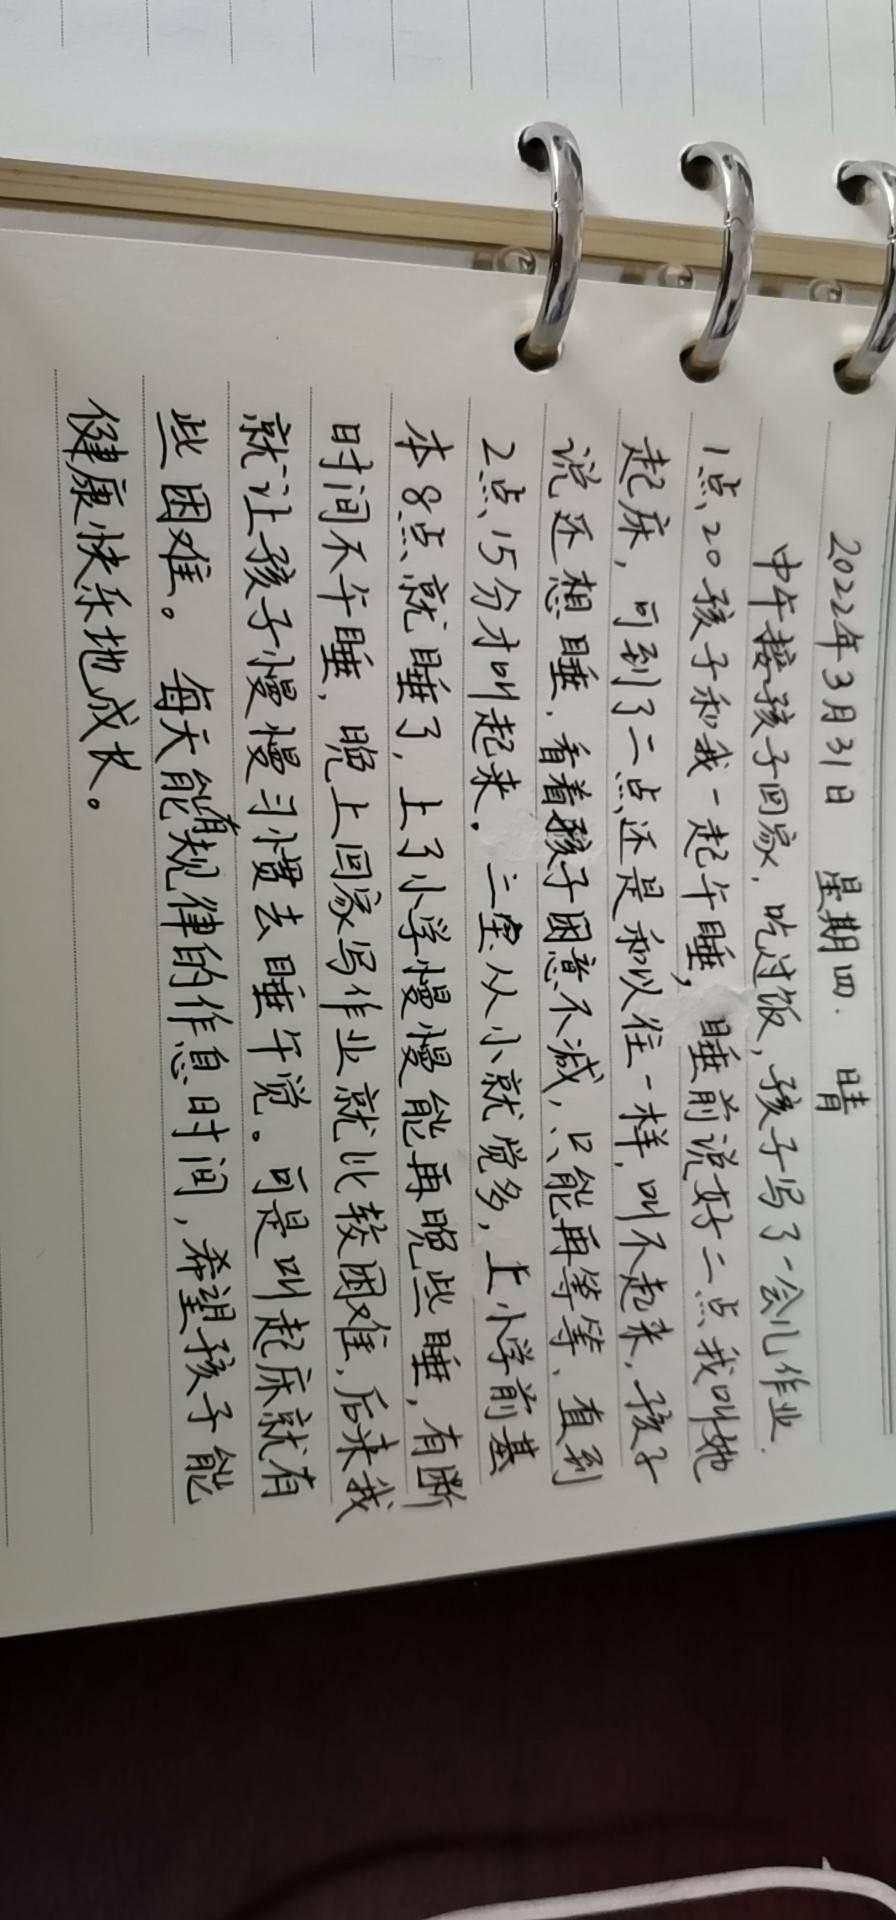 2022年3月31日 星期四. 晴
中午接孩子回家，吃过饭，孩子写了一会儿作业.
1点20孩子和我一起午睡，睡前说好二点我叫她
起床，可到了二点还是和以往一样，叫不起来，孩子
说还想睡，看着孩子困意不减，只能再等等、直到
2点15分才叫起来。二宝从小就觉多，上小学前基
本8点就睡了，上了小学慢慢能再晚些睡，有断
时间不午睡，晚上回家写作业就比较困难，后来我
就让孩子慢慢习惯去睡午觉。可是叫起床就有
些困难。每天能有规律的作息时间，希望孩子能
健康快乐地成长。